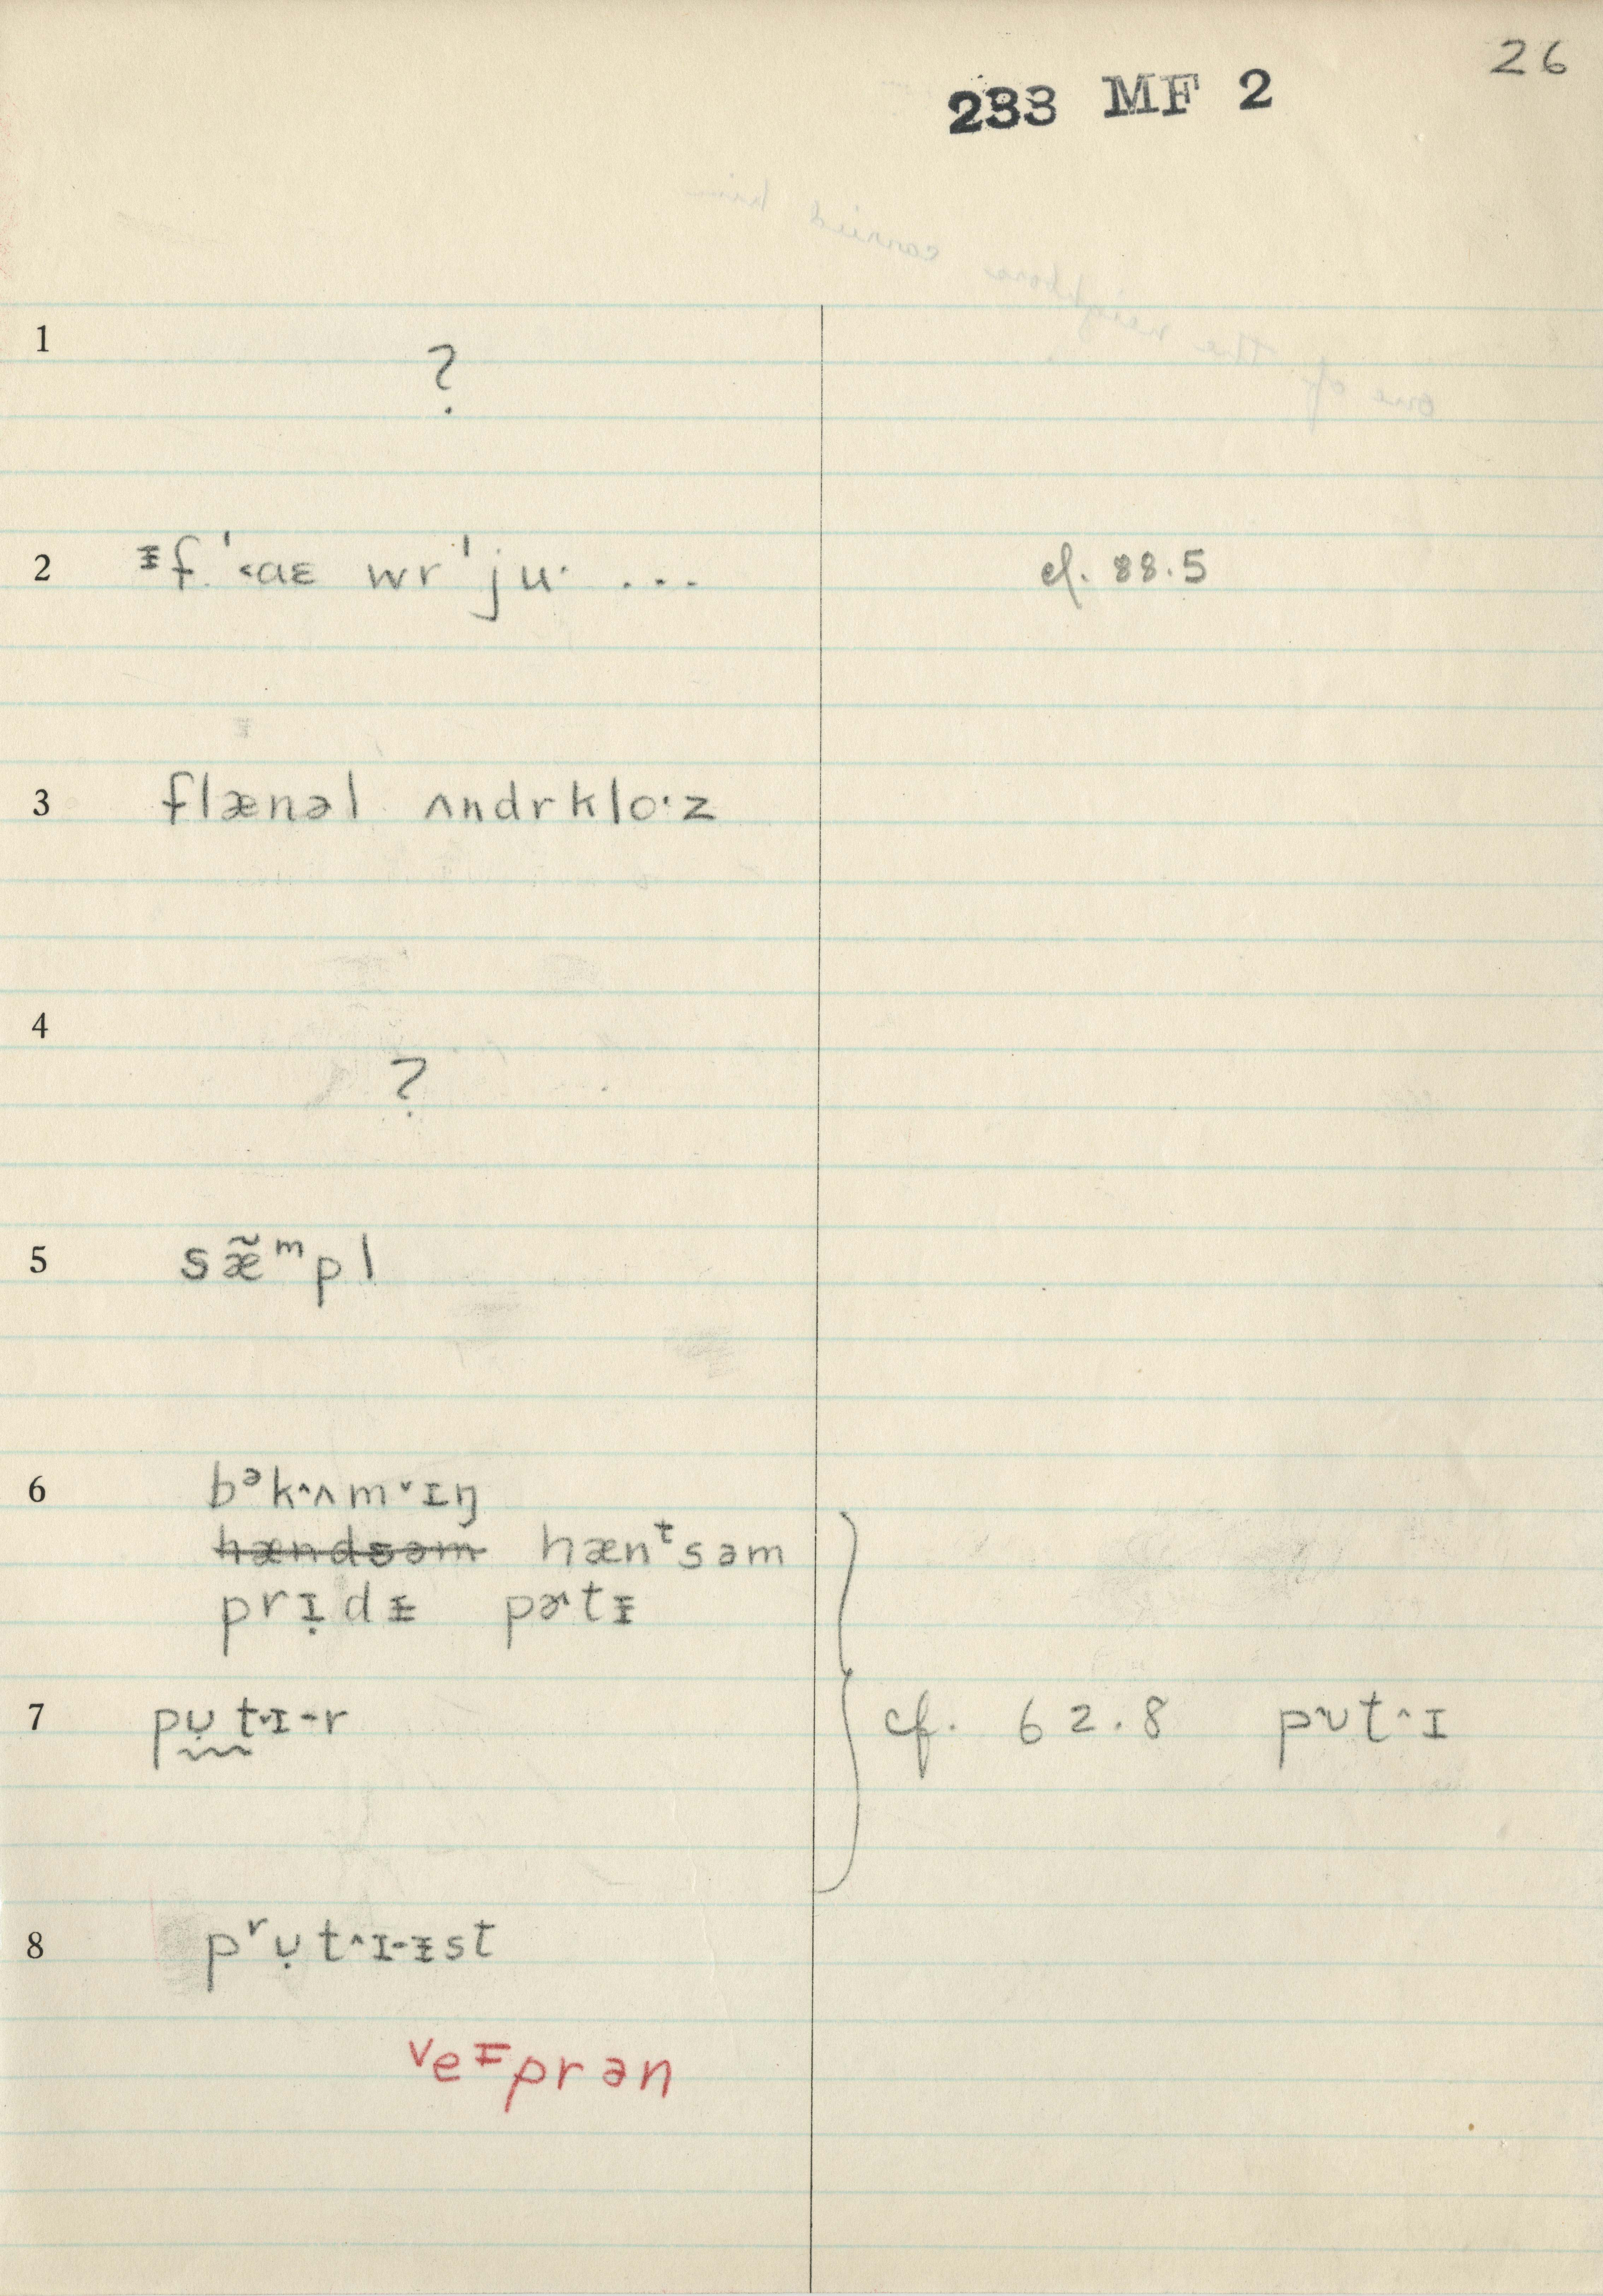 26
233 MF 2
1 ?
2 ᵻf ˈ˂aɛ wr ˈju· ... cf. 88.5
3 flænəl ʌndrklo·z
4 ?
5 sæ̃ᵐpl
6 bᵊk˄ʌm˅ɪŋ
~~hændsəm~~ hænᵗsəm
prɪ̣dᵻ pɚtᵻ
7 pụt˅ɪ-r cf. 62.8 p˅ʊt˄ɪ
8 pʳụt˄ɪ-ᵻst
ᵛeᵻprən